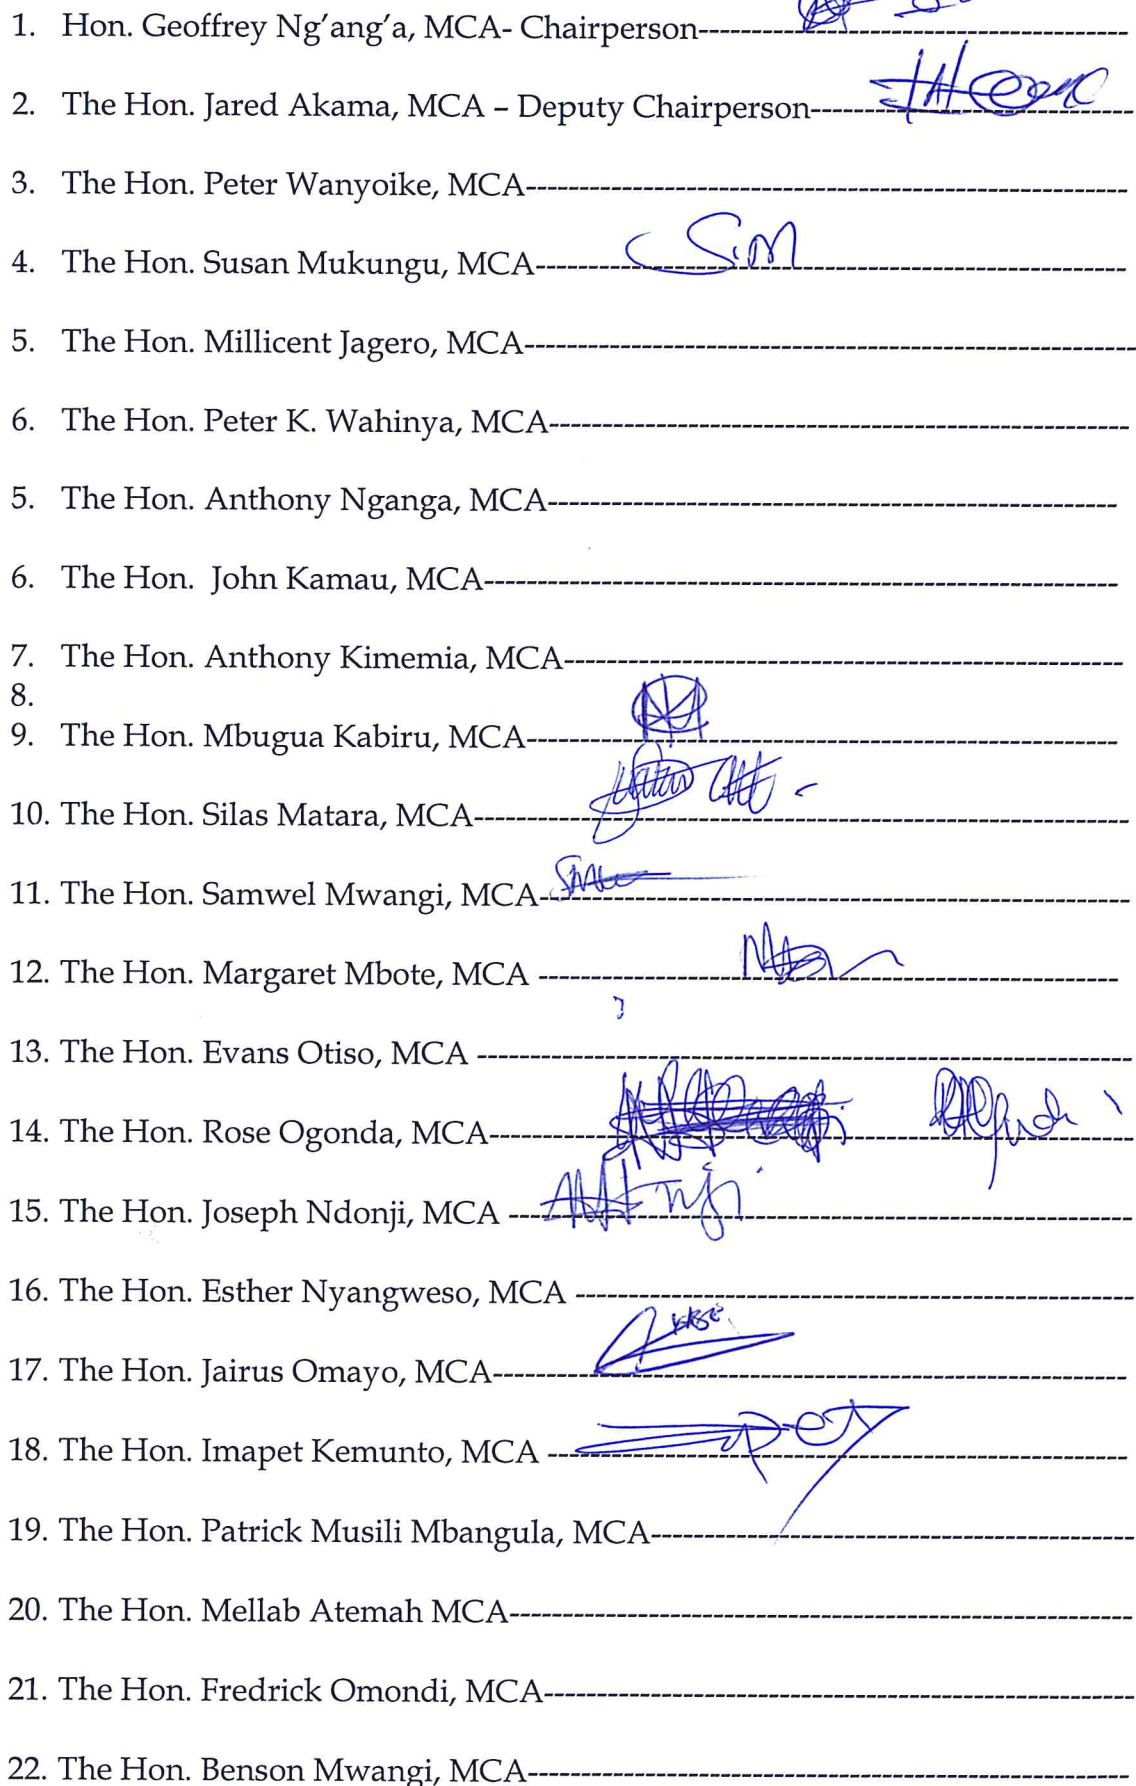 1. Hon. Geoffrey Ng'ang'a, MCA- Chairperson--------------------------------------------
2. The Hon. Jared Akama, MCA – Deputy Chairperson--------------------------------
3. The Hon. Peter Wanyoike, MCA------------------------------------------------------------
4. The Hon. Susan Mukungu, MCA-----------------------------------------------------------
S.M
5. The Hon. Millicent Jagero, MCA-------------------------------------------------------------
6. The Hon. Peter K. Wahinya, MCA----------------------------------------------------------
5. The Hon. Anthony Nganga, MCA---------------------------------------------------------
6. The Hon. John Kamau, MCA---------------------------------------------------------------
7. The Hon. Anthony Kimemia, MCA--------------------------------------------------------
8.
9. The Hon. Mbugua Kabiru, MCA-----------------------------------------------------------
10. The Hon. Silas Matara, MCA-----------------------------------------------------------------
11. The Hon. Samwel Mwangi, MCA----------------------------------------------------------
12. The Hon. Margaret Mbote, MCA ----------------------------------------------------------
13. The Hon. Evans Otiso, MCA -----------------------------------------------------------------
14. The Hon. Rose Ogonda, MCA----------------------------------------------------------------
15. The Hon. Joseph Ndonji, MCA --------------------------------------------------------------
16. The Hon. Esther Nyangweso, MCA --------------------------------------------------------
17. The Hon. Jairus Omayo, MCA---------------------------------------------------------------
18. The Hon. Imapet Kemunto, MCA ----------------------------------------------------------
19. The Hon. Patrick Musili Mbangula, MCA------------------------------------------------
20. The Hon. Mellab Atemah MCA--------------------------------------------------------------
21. The Hon. Fredrick Omondi, MCA-----------------------------------------------------------
22. The Hon. Benson Mwangi, MCA------------------------------------------------------------